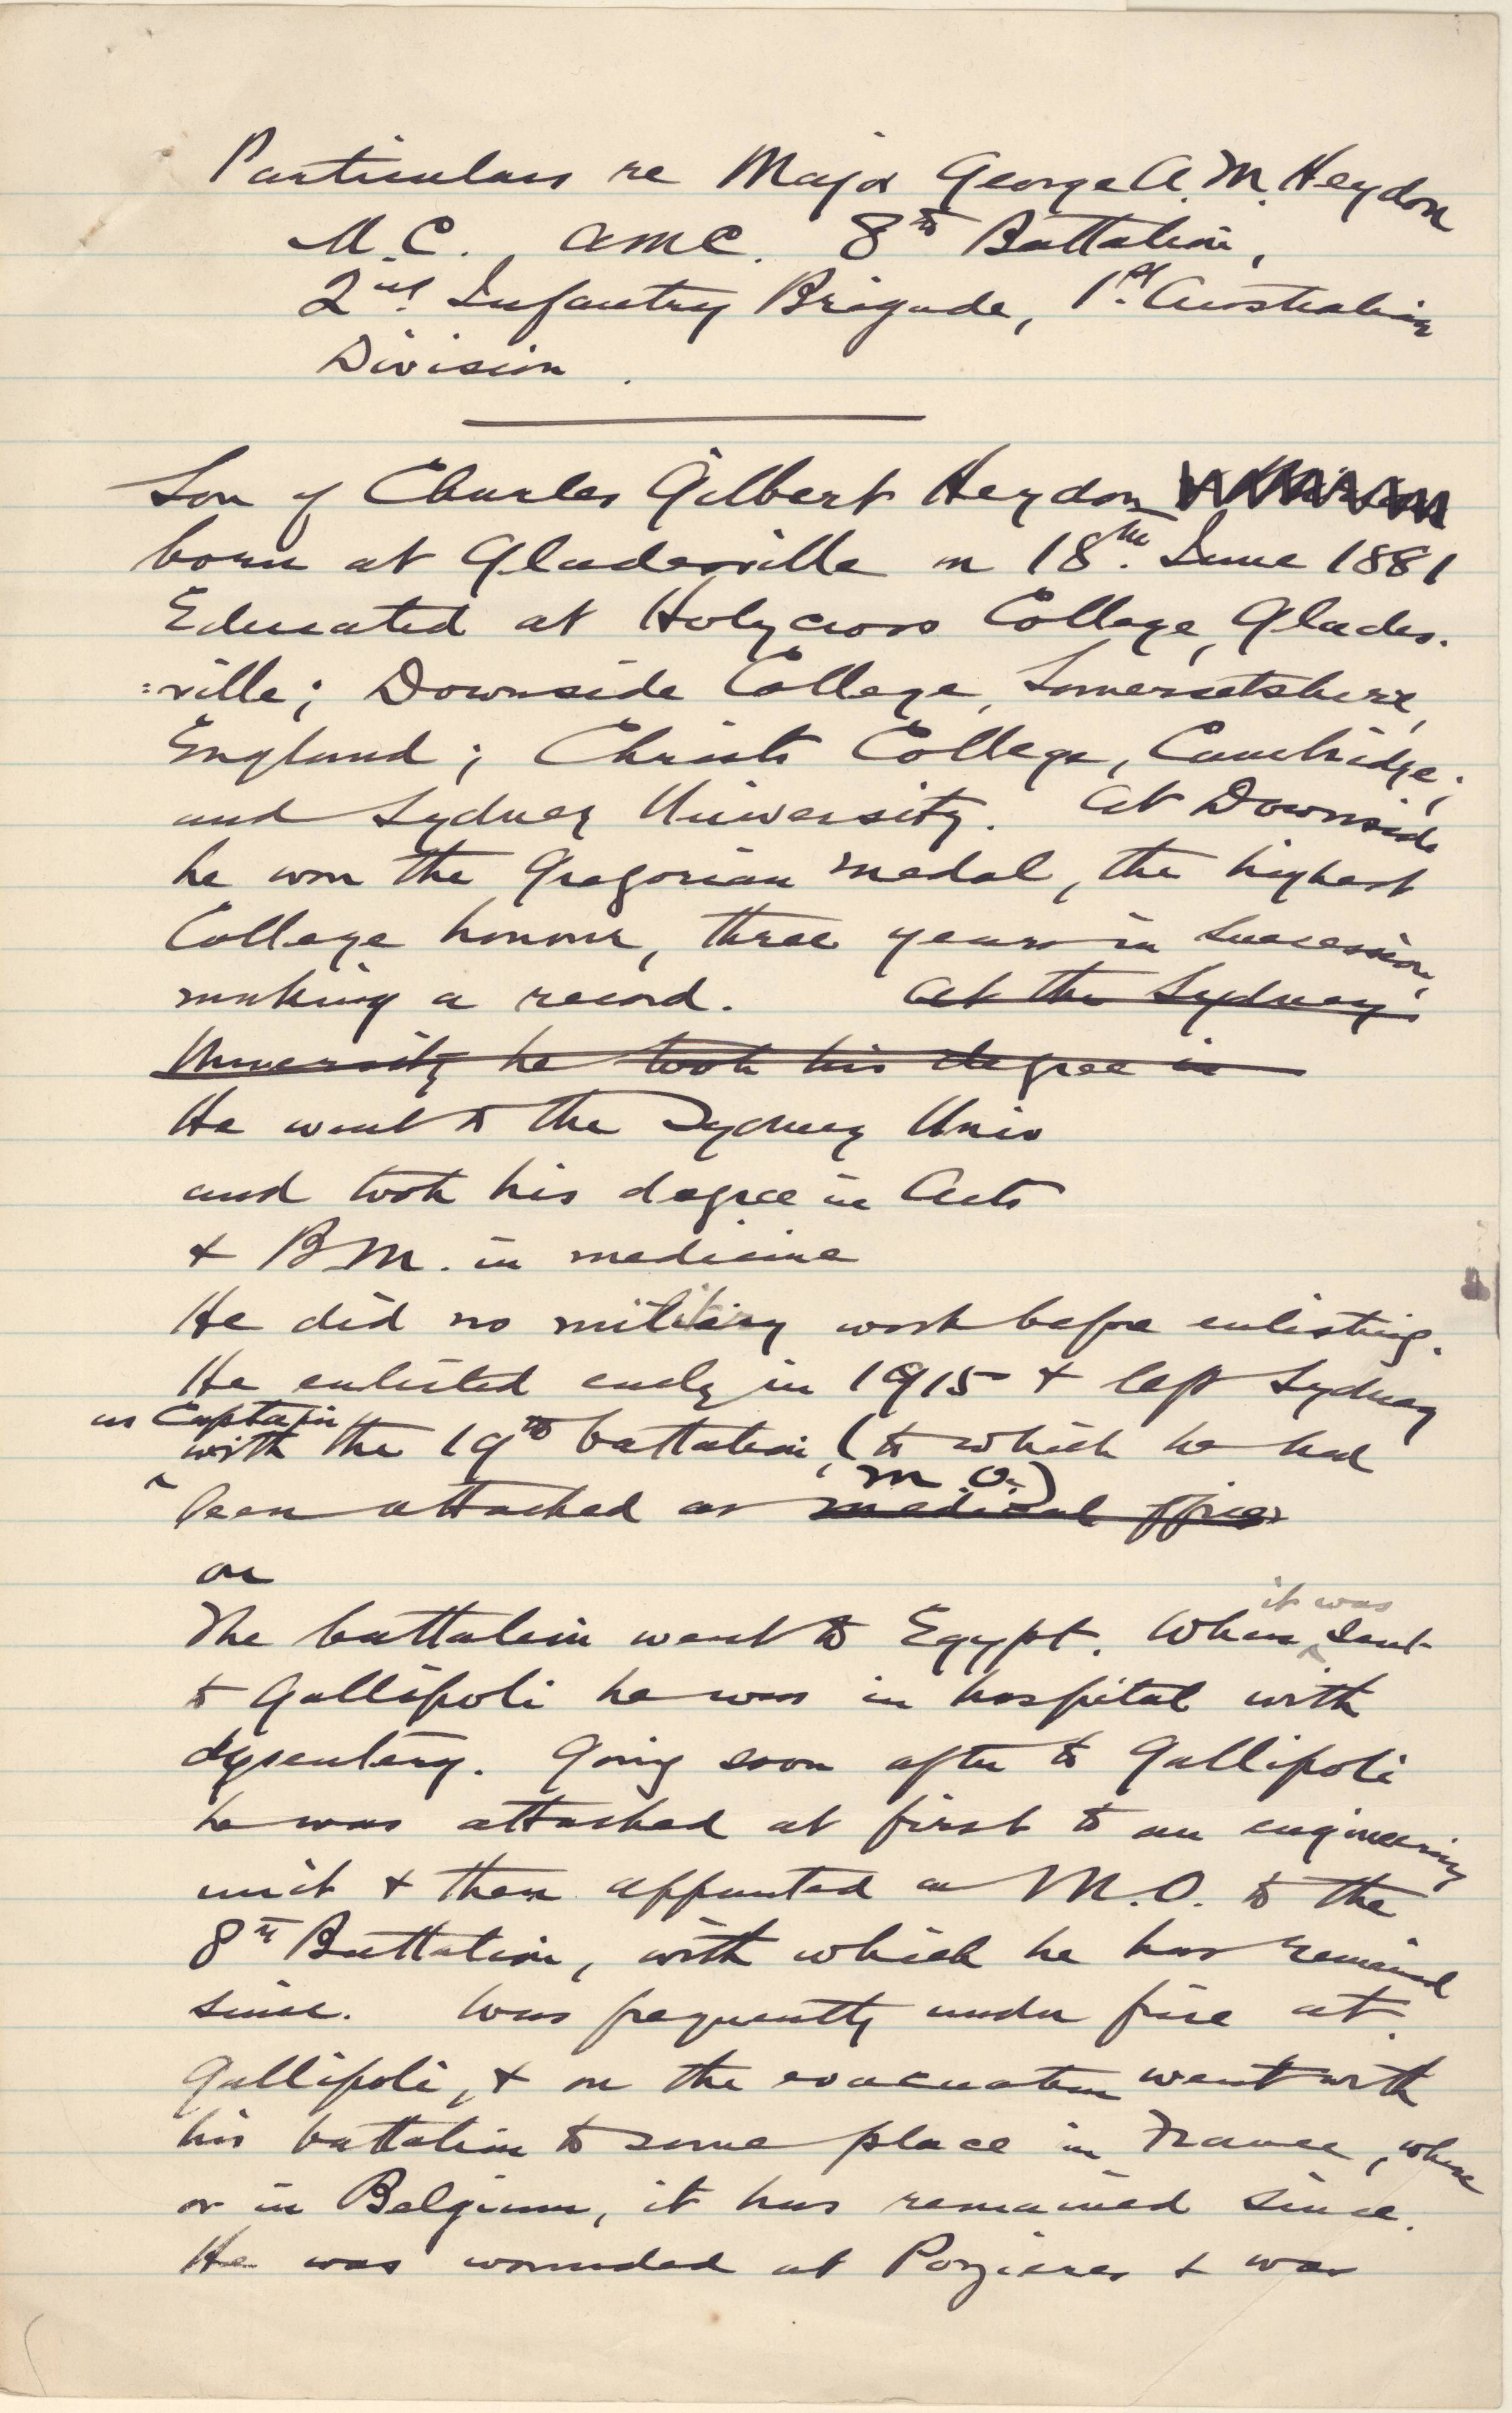 Particulars re Major George A. M. Heydon
M.C., AMC. 8th Battalion,
2nd Infantry Brigade, 1st Australian
Division.
Son of Charles Gilbert Heydon
born at Gladesville on 18th June 1881
Educated at Holycross College, Glades-
=ville; Downside College, Somersetshire,
England; Christs College, Cambridge;
and Sydney University. At Downside
he won the Gregorian medal, the highest
College honour, three years in succession,
making a record. At the Sydney
University he took his degree in
He went to the Sydney Univ
and took his degree in Arts
& B M. in medicine
He did no military work before enlisting.
He enlisted early in 1915 & left Sydney
as Captain
with the 19th battalion, (to which he had
M O.)
been attached as medical officer
on
it was
The battalion went to Egypt. When sent
to Gallipoli he was in hospital with
dysentery. Going soon after to Gallipoli
he was attached at first to an engineering
unit & then appointed as M.O. to the
8th Battalion, with which he has remained
since. Was frequently under fire at
Gallipoli, & on the evacuation went with
his battalion to some place in France, where
or in Belgium, it has remained since.
He was wounded at Pozieres & was